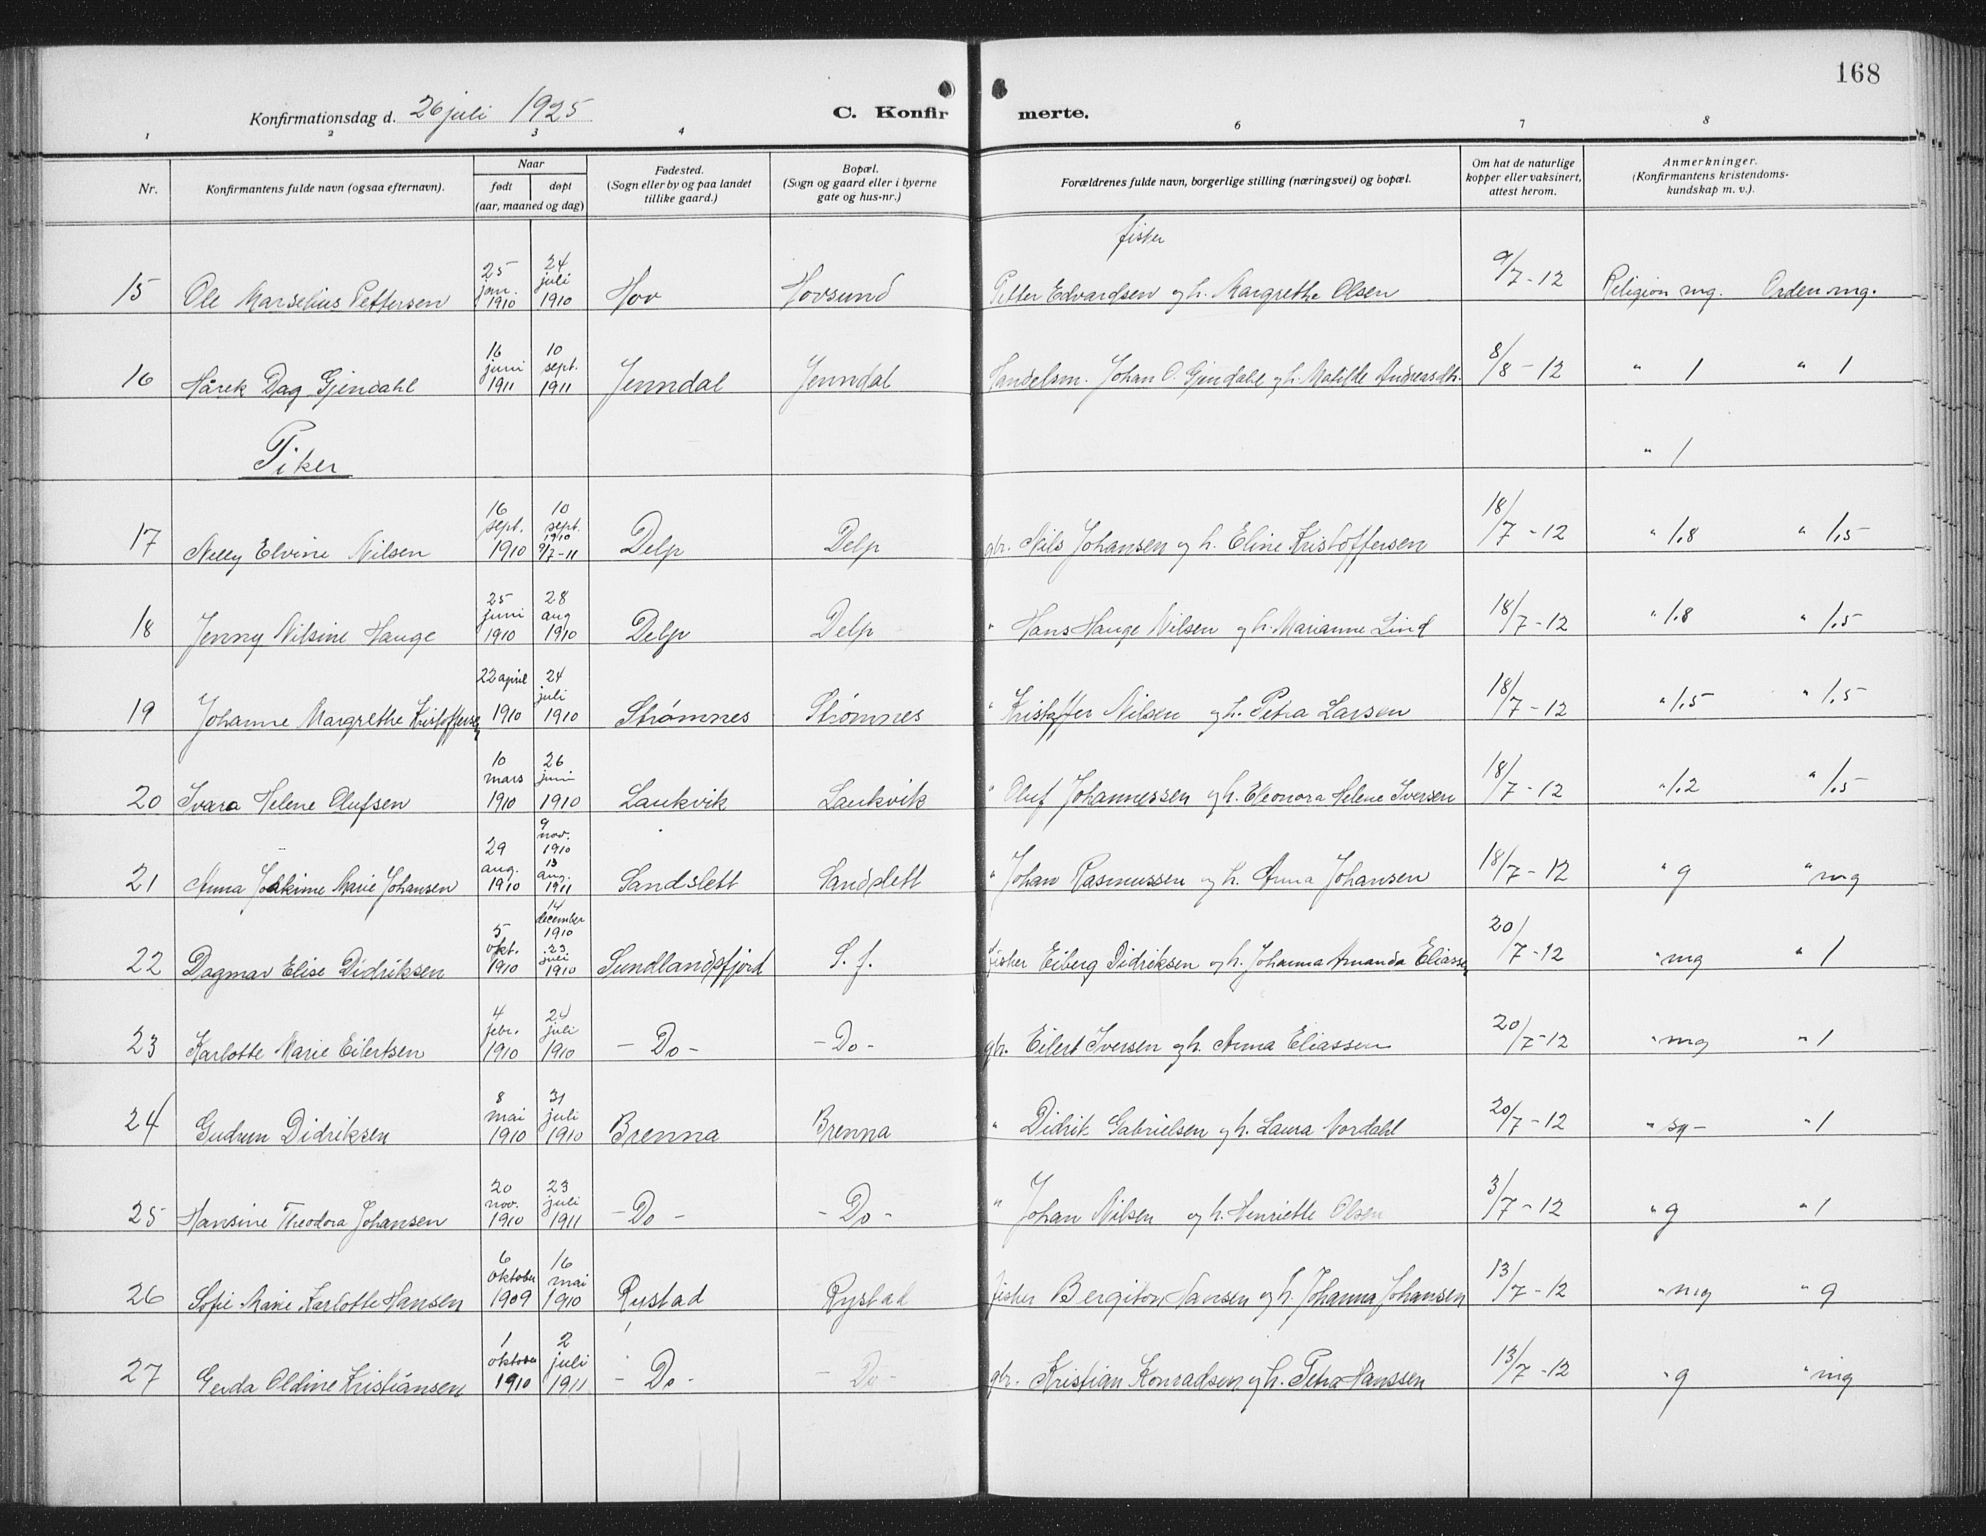 168
Konfirmationsdag d. 26 juli 1925
C. Konfirmerte.
1 2 3 4 6 7 8
Nr.
Konfirmantens fulde navn (ogsaa efternavn).
Naar
født døpt
(aar, maaned og dag)
Fødested.
(Sogn eller by og paa landet
tillike gaard.)
Bopæl.
(Sogn og gaard eller i byerne
gate og hus-nr.)
Forældrenes fulde navn, borgerlige stilling (næringsvei) og bopæl.
Om hat de naturlige
kopper eller vaksinert,
attest herom.
Anmerkninger.
(Konfirmantens kristendoms-
kundskap m. v.).
fisker
15 Ole Marselius Pettersen 25 jan. 1910 24 juli 1910 Hov Hovsund Petter Edvardsen og h. Margrethe Olsen 9/7-12 Religion mg. Orden mg.
16 Hårek Dag Gjendahl 16 juni 1911 10 sept. 1911 Jenndal Jenndal Handelsm. Johan O. Gjendahl og h. Matilde Andreasdt. 8/8-12 " 1 " 1
Piker " 1
17 Nelly Elvine Nilsen 16 sept. 1910 10 sept. 1910 9/7-11 Delp Delp gbr. Nils Johansen og h. Eline Kristoffersen 18/7-12 " 1.8 " 1.5
18 Jenny Nilsine Hauge 25 juni 1910 28 aug 1910 Delp Delp " Hans Hauge Nilsen og h. Marianne Lind 18/7-12 " 1.8 " 1.5
19 Johanne Margrethe Kristoffersen 22 april 1910 24 juli 1910 Strømnes Strømnes " Kristoffer Nilsen og h. Petra Larsen 18/7-12 " 1.5 " 1.5
20 Ivara Helene Olufsen 10 mars 1910 26 juni 1910 Laukvik Laukvik " Oluf Johannessen og h. Eleonora Helene Iversen 18/7-12 " 1.2 " 1.5
21 Anna Joakime Marie Johansen 29 aug. 1910 9 nov. 1910 13 aug. 1911 Sandslett Sandslett " Johan Rasmussen og h. Anna Johansen 18/7-12 " g " mg
22 Dagmar Elise Didriksen 5 okt. 1910 14 december 1910 23 juli 1910 Sundlandsfjord S. f. fisker Eiberg Didriksen og h. Johanna Amanda Eliassen 20/7-12 " mg " 1
23 Karlotte Marie Eilertsen 4 febr. 1910 24 juli 1910 - Do - - Do - gbr. Eilert Iversen og h. Anna Eliassen 20/7-12 " mg " 1
24 Gudrun Didriksen 8 mai 1910 31 juli 1910 Brenna Brenna " Didrik Gabrielsen og h. Laura Nordahl 20/7-12 " sg - " 1
25 Hansine Theodora Johansen 20 nov. 1910 23 juli 1911 - Do - - Do - " Johan Nilsen og h. Henriette Olsen 3/7-12 " g " 1
26 Sofie Marie Karlotte Hansen 6 oktober 1909 16 mai 1910 Rystad Rystad fisker Bergiton Hansen og h. Johanna Johansen 13/7-12 " mg " g
27 Gerda Oldine Kristiansen 1 oktober 1910 2 juli 1911 - Do - - Do - gbr. Kristian Konradsen og h. Petra Hanssen 13/7-12 " g " mg